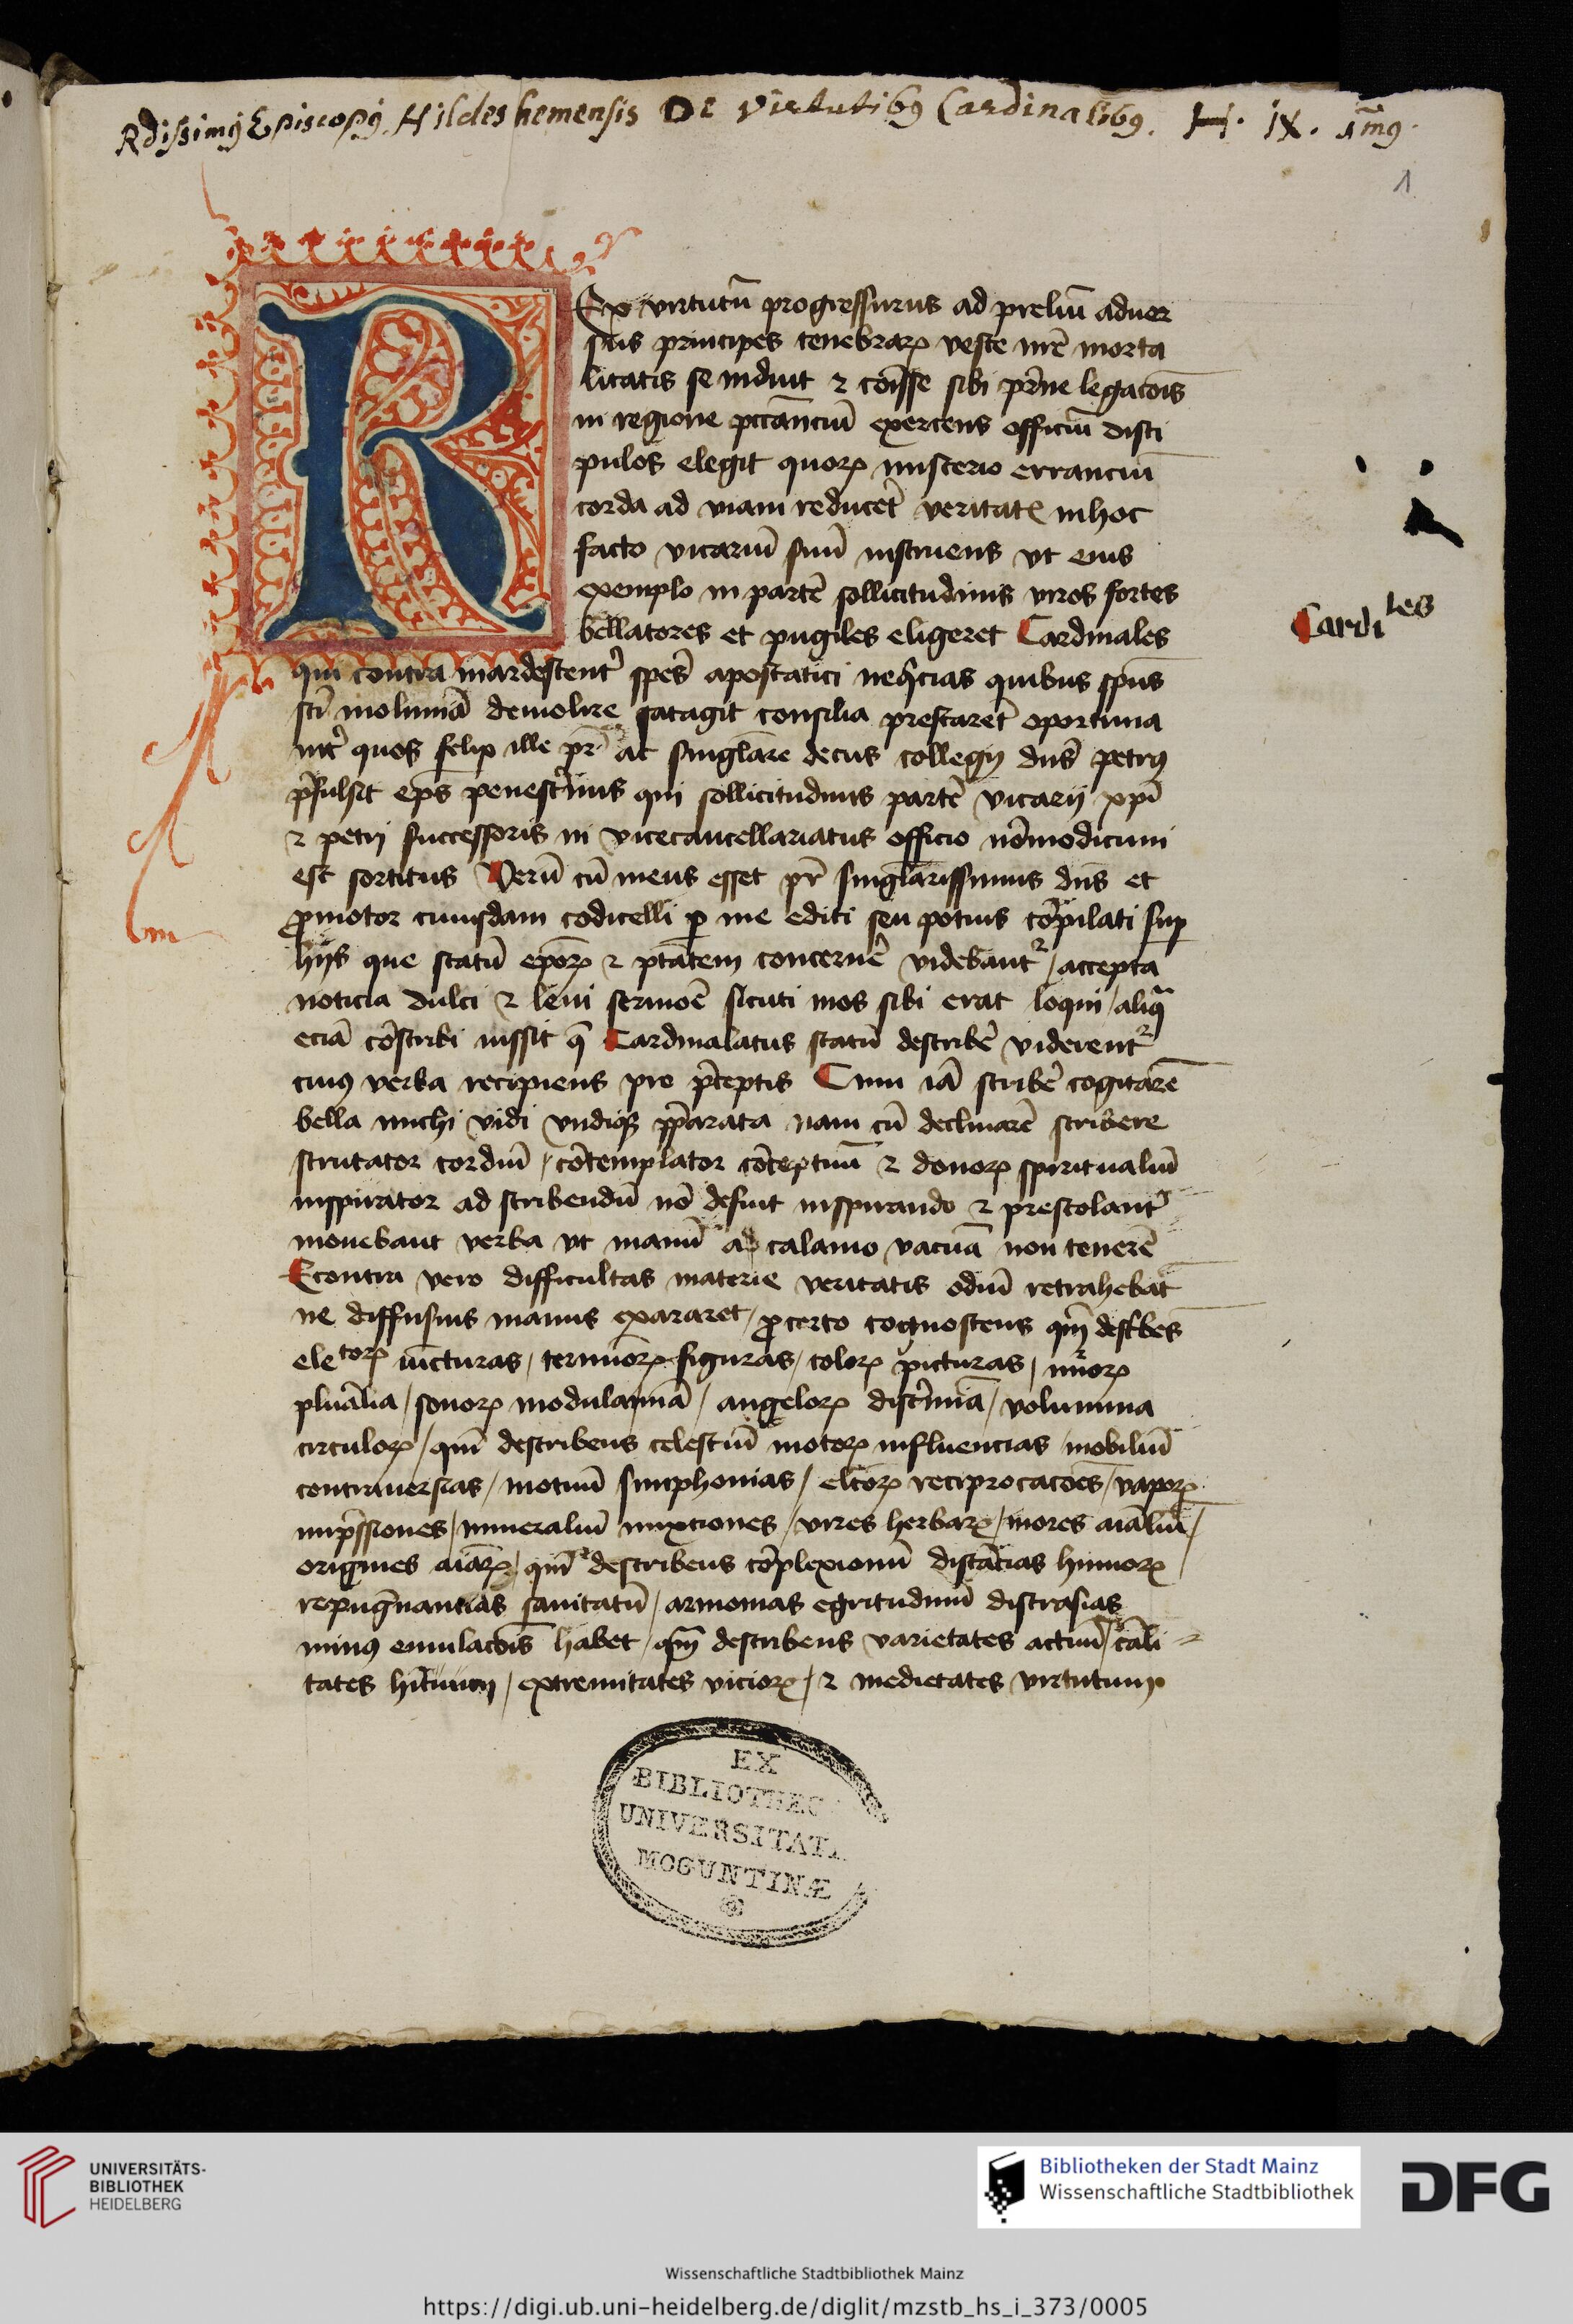 Rdissimꝰ Episcopꝰ Hildeshemensis De Virtutibꝰ Cardinalibꝰ. H. IX. 1mꝰ.
1
REx virtutū progressurus ad preliū aduer
sus principes tenebrarꝝ veste nr̄e morta
litatis se induit ⁊ cōisse sibi pr̄ne legacōis
in regione peccanciū exercens officiū disci
pulos elegit quorꝝ misterio erranciū
corda ad viam reducet̄ veritatꝭ in hoc
facto vicariū suū instruens vt eius
exemplo in partē sollicitudinis viros fortes
bellatores et pugiles eligeret Cardinales
Cardiles
qui contra apostatici neq̄cias quibus spūs
sc̄i demolire satagit consilia prestaret̄ oportuna
int̄ quos felix ille pr̄ ac singlāre decus collegij dn̄s petrꝰ
p̄fulsit ep̄s penestr̄inus qui sollicitudinis partē vicarij xp̄i
⁊ petri successoris in vicecancellariatus officio nōmodicum
est sortitus Verū cū meus esset pr̄ singlārissimus dn̄s et
ꝓmotor cuiusdam codicelli ꝑ me editi seu potius cōpilati suꝑ
hijs que statū ep̄orꝝ ⁊ ptātem concernē videbant᷑ / accepta
noticia dulci ⁊ leui sermōe sicuti mos sibi erat loqui / aliq̄
eciā cōscribi iussit q̄ Cardinalatus statū describē viderent᷑
cuiꝰ verba recipiens pro p̄ceptis Cum iā scribē cogitarē
bella michi vidi vndiqꝫ p̄parata nam cū declinarē scribere
scrutator cordiū / cōtemplator cōceptuū ⁊ donorꝝ spiritualiū
inspirator ad scribendū nō desiuit inspirando ⁊ prestolant᷑
mouebant verba vt manū a calamo vacuā non tenerē
Econtra vero difficultas materie veritatis odiū retrahebat
ne diffusius manus exararet / ꝓcerto cognoscens qm̄ descͥbēs
eletorꝝ iūcturas / terminorꝝ figuras / colorꝝ picturas / nūorꝝ
/ sonorꝝ modulamīa / angelorꝝ discrīmia / volumina
circulorꝝ / qm̄ describens celestiū motorꝝ influencias / mobiliū
contrauersias / motuū simphonias / elc̄orꝝ reciprocacōes / vaporꝝ
imp̄ssiones / mineraliū mixtiones / vires herbarꝝ / mores aīaliū /
origines aīarꝝ / qm̄ describens cōplexionū distācias humorꝝ
repugnancias sanitatū / armonias egritudinū discrasias
minꝰ emulacōis habet / qm̄ describens varietates actuū / cāli
tates hītuum / extremitates viciorꝝ / ⁊ medietates virtutum
EX
BIBLIOTHEC
UNIVERSITAT
MOGUNTINÆ
UNIVERSITÄTS-
BIBLIOTHEK
HEIDELBERG
Bibliotheken der Stadt Mainz
Wissenschaftliche Stadtbibliothek
DFG
Wissenschaftliche Stadtbibliothek Mainz
https://digi.ub.uni-heidelberg.de/diglit/mzstb_hs_i_373/0005